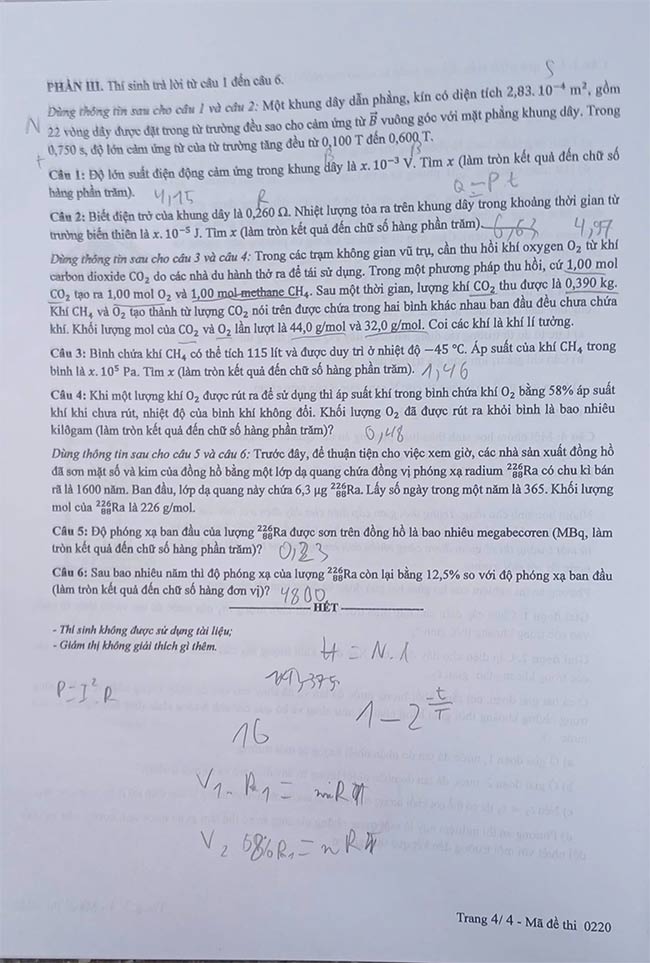 PHẦN III. Thí sinh trả lời từ câu 1 đến câu 6.
S
Dùng thông tin sau cho câu 1 và câu 2: Một khung dây dẫn phẳng, kín có diện tích 2,83. 10⁻⁴ m², gồm
N 22 vòng dây được đặt trong từ trường đều sao cho cảm ứng từ B⃗ vuông góc với mặt phẳng khung dây. Trong
t 0,750 s, độ lớn cảm ứng từ của từ trường tăng đều từ 0,100 T đến 0,600 T.
B B
Câu 1: Độ lớn suất điện động cảm ứng trong khung dây là x. 10⁻³ V. Tìm x (làm tròn kết quả đến chữ số
hàng phần trăm). 4,15 R Q = P t
Câu 2: Biết điện trở của khung dây là 0,260 Ω. Nhiệt lượng tỏa ra trên khung dây trong khoảng thời gian từ
trường biến thiên là x. 10⁻⁵ J. Tìm x (làm tròn kết quả đến chữ số hàng phần trăm). 6,63 4,97
Dùng thông tin sau cho câu 3 và câu 4: Trong các trạm không gian vũ trụ, cần thu hồi khí oxygen O₂ từ khí
carbon dioxide CO₂ do các nhà du hành thở ra để tái sử dụng. Trong một phương pháp thu hồi, cứ 1,00 mol
CO₂ tạo ra 1,00 mol O₂ và 1,00 mol methane CH₄. Sau một thời gian, lượng khí CO₂ thu được là 0,390 kg.
Khí CH₄ và O₂ tạo thành từ lượng CO₂ nói trên được chứa trong hai bình khác nhau ban đầu đều chưa chứa
khí. Khối lượng mol của CO₂ và O₂ lần lượt là 44,0 g/mol và 32,0 g/mol. Coi các khí là khí lí tưởng.
Câu 3: Bình chứa khí CH₄ có thể tích 115 lít và được duy trì ở nhiệt độ −45 °C. Áp suất của khí CH₄ trong
bình là x. 10⁵ Pa. Tìm x (làm tròn kết quả đến chữ số hàng phần trăm). 1,46
Câu 4: Khi một lượng khí O₂ được rút ra để sử dụng thì áp suất khí trong bình chứa khí O₂ bằng 58% áp suất
khí khi chưa rút, nhiệt độ của bình khí không đổi. Khối lượng O₂ đã được rút ra khỏi bình là bao nhiêu
kilôgam (làm tròn kết quả đến chữ số hàng phần trăm)?
0,48
Dùng thông tin sau cho câu 5 và câu 6: Trước đây, để thuận tiện cho việc xem giờ, các nhà sản xuất đồng hồ
đã sơn mặt số và kim của đồng hồ bằng một lớp dạ quang chứa đồng vị phóng xạ radium ²²⁶₈₈Ra có chu kì bán
rã là 1600 năm. Ban đầu, lớp dạ quang này chứa 6,3 μg ²²⁶₈₈Ra. Lấy số ngày trong một năm là 365. Khối lượng
mol của ²²⁶₈₈Ra là 226 g/mol.
Câu 5: Độ phóng xạ ban đầu của lượng ²²⁶₈₈Ra được sơn trên đồng hồ là bao nhiêu megabecơren (MBq, làm
tròn kết quả đến chữ số hàng phần trăm)? 0,23
Câu 6: Sau bao nhiêu năm thì độ phóng xạ của lượng ²²⁶₈₈Ra còn lại bằng 12,5% so với độ phóng xạ ban đầu
(làm tròn kết quả đến chữ số hàng đơn vị)? 4800
HẾT
- Thí sinh không được sử dụng tài liệu;
- Giám thị không giải thích gì thêm.
H = N.λ
P = I².R
1 − 2^(−t/T)
16
Trang 4/ 4 - Mã đề thi 0220